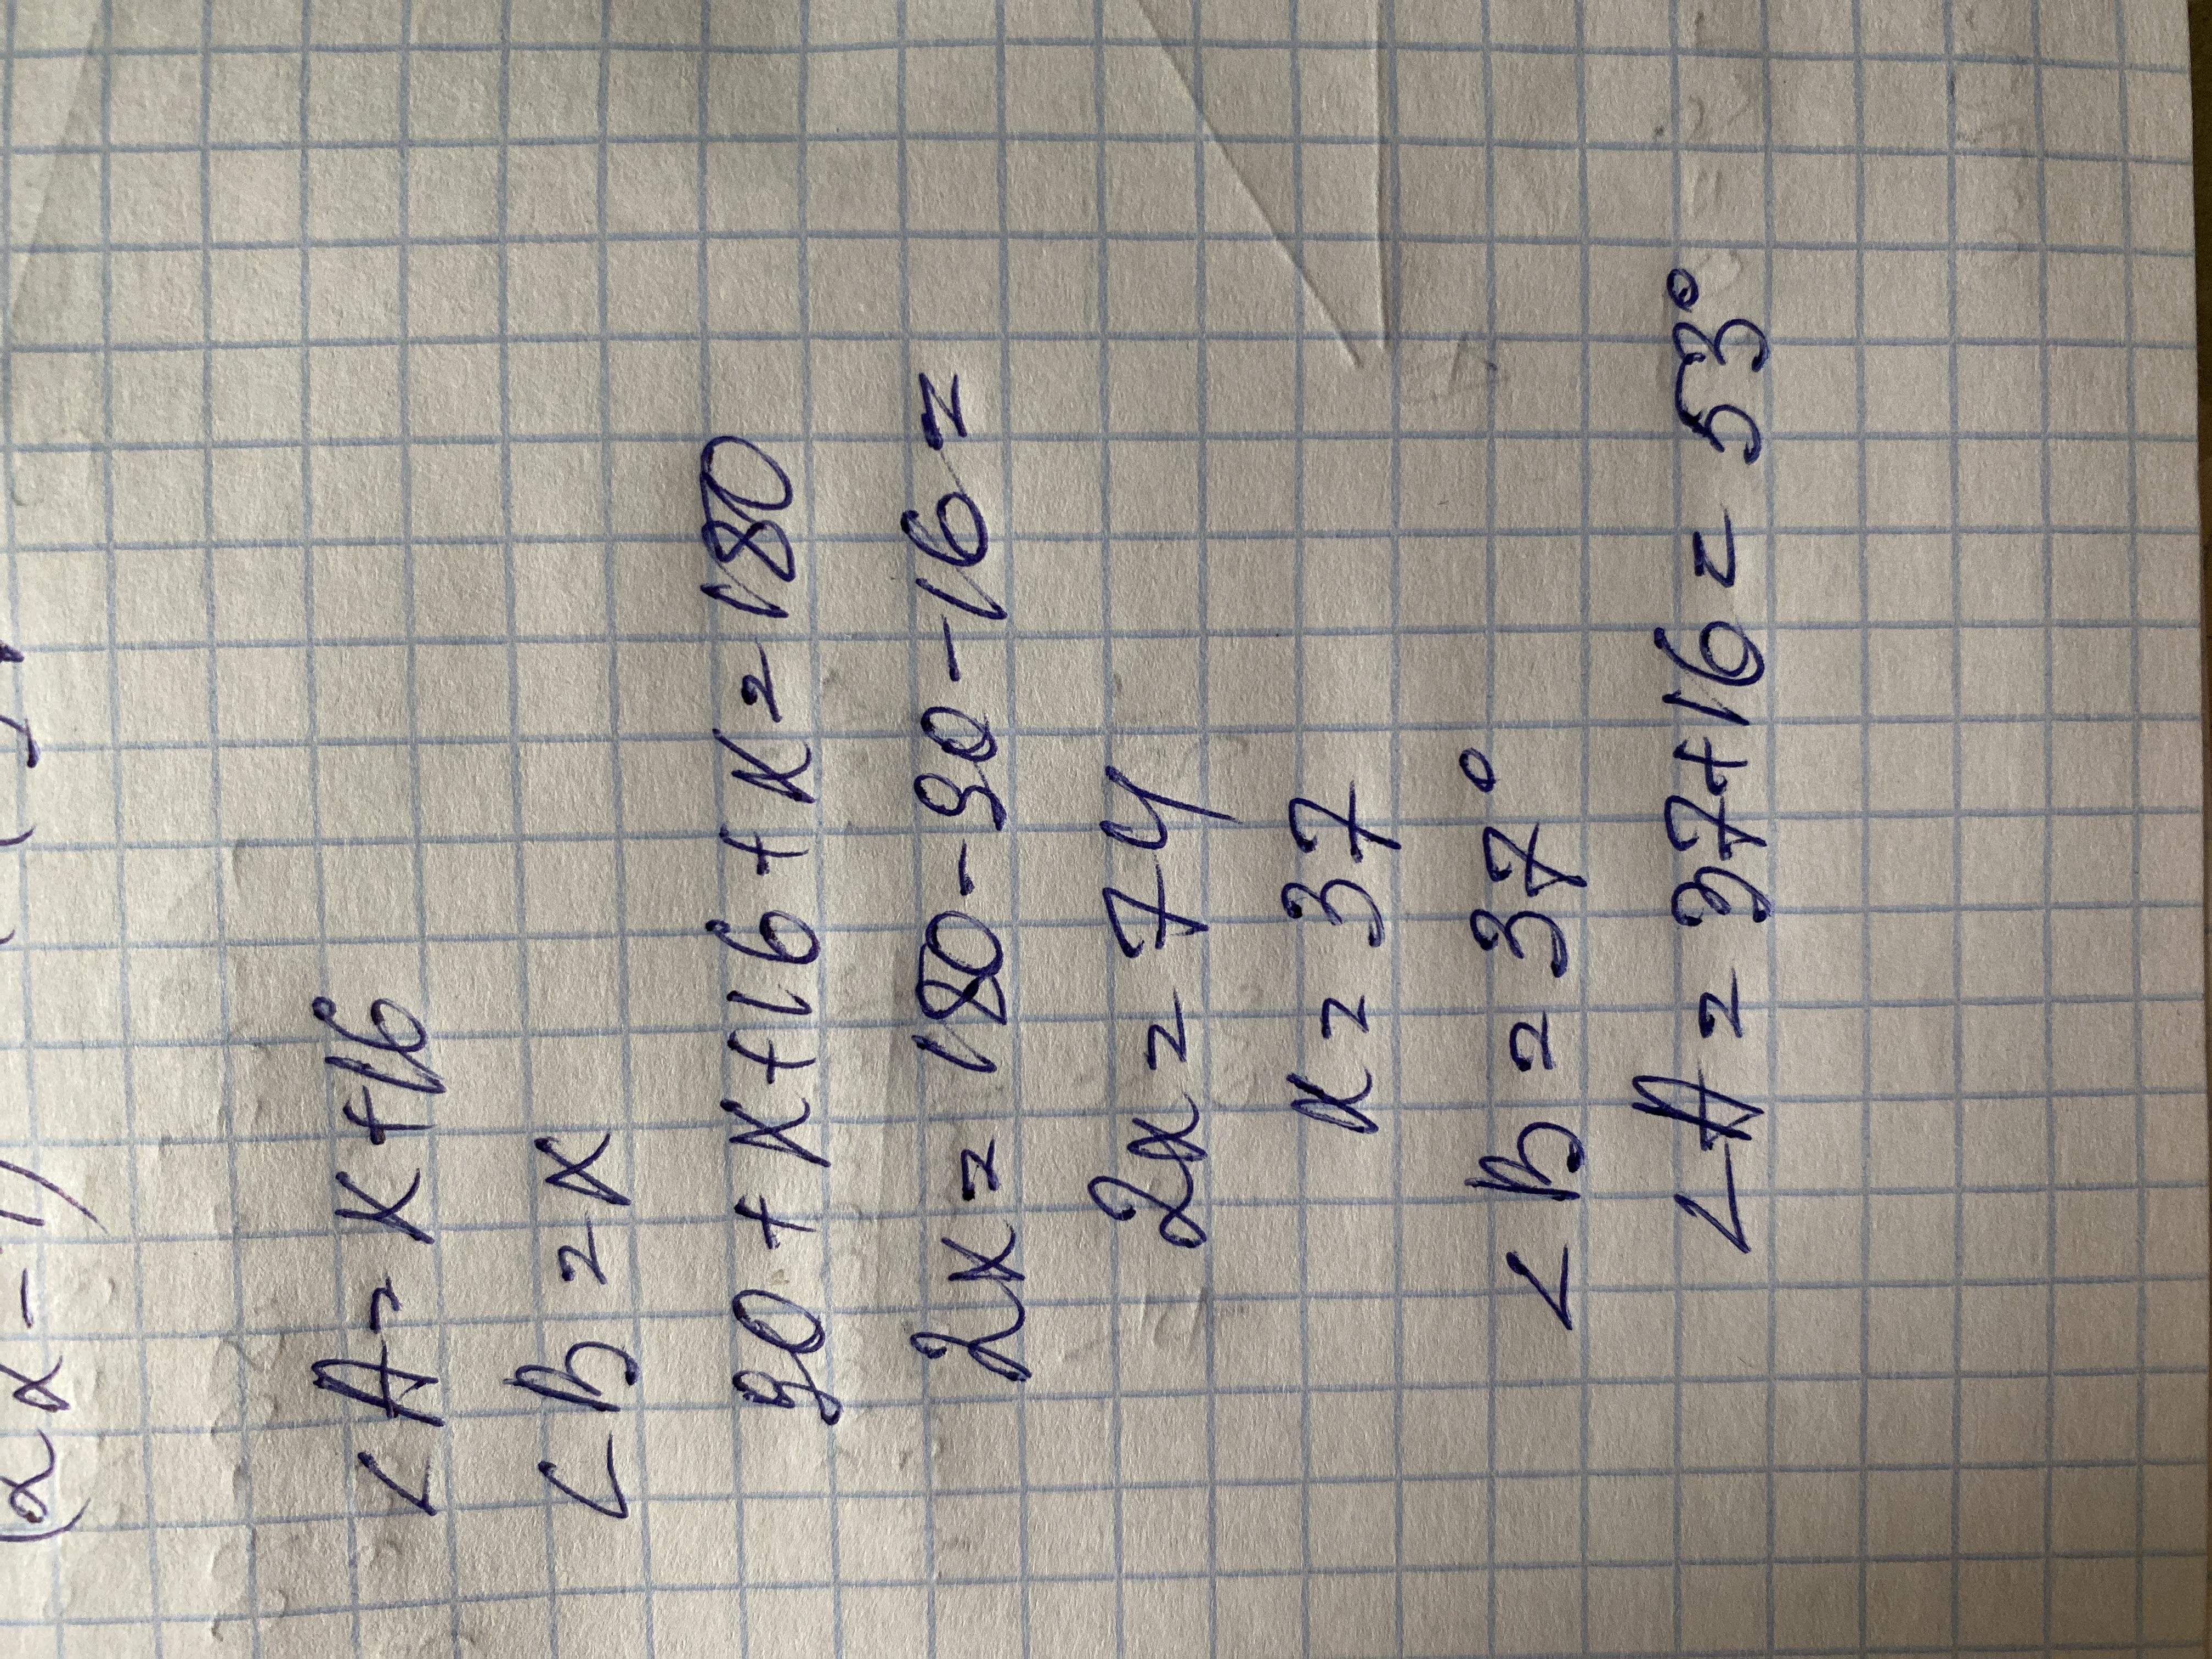 ∠A = x+16
∠B = x
90 + x+16 + x = 180
2x = 180-90-16 =
2x = 74
x = 37
∠B = 37°
∠A = 37+16 = 53°